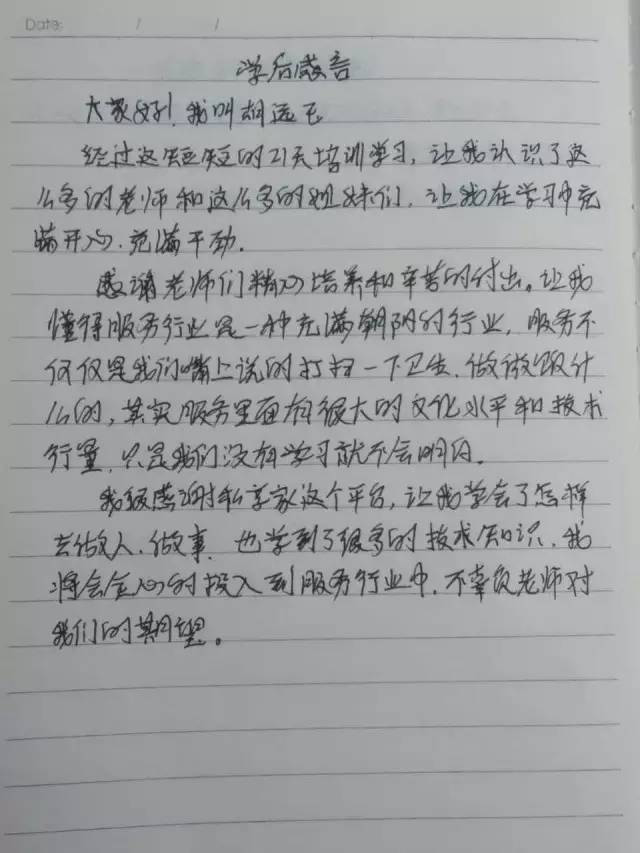 Date: / /
学后感言
大家好!我叫胡远飞
经过这短短的21天培训学习,让我认识了这
么多的老师和这么多的姐妹们,让我在学习中充
满开心.充满干劲.
感谢老师们精心培养和辛苦的付出。让我
懂得服务行业是一种充满朝阴的行业,服务不
仅是我们嘴上说的打扫一下卫生.做做饭什
么的,其实服务里面有很大的文化水平和技术
,只是我们没有学习就不会明白。
我很感谢私享家这个平台,让我学会了怎样
去做人.做事.也学到了很多的技术知识.我
将会全心的投入到服务行业中.不辜负老师对
我们的期望。